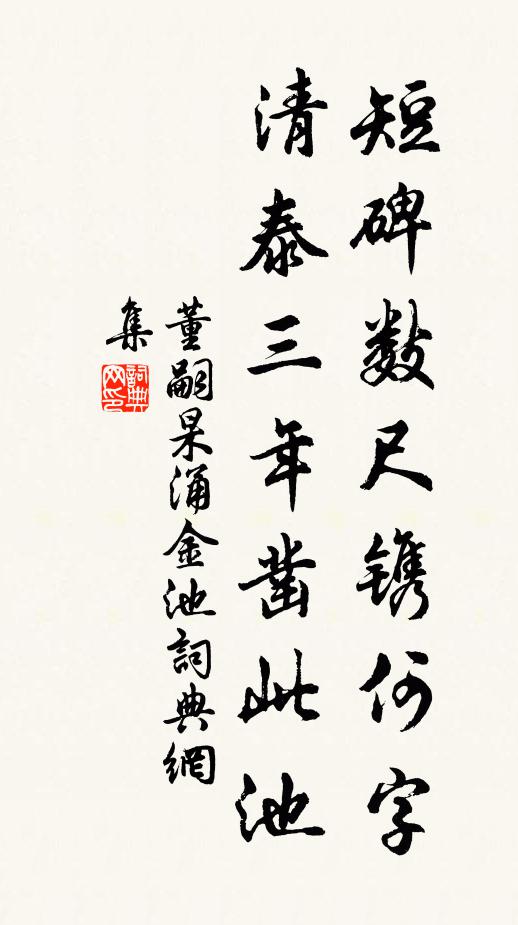 短碑数尺镌何字
清泰三年凿此池
董嗣杲涌金池詞典網
集
詞典
网印